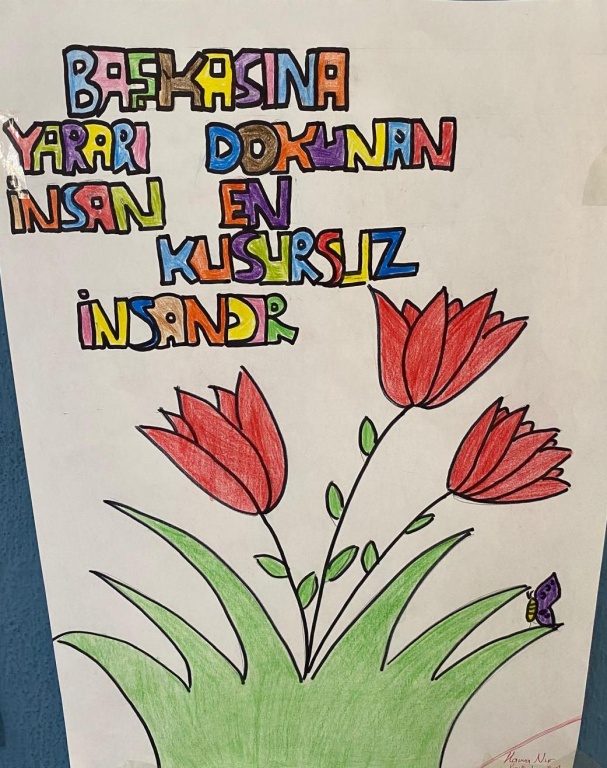 BAŞKASINA
YARARI DOKUNAN
İNSAN EN
KUSURSUZ
İNSANDIR
Nur